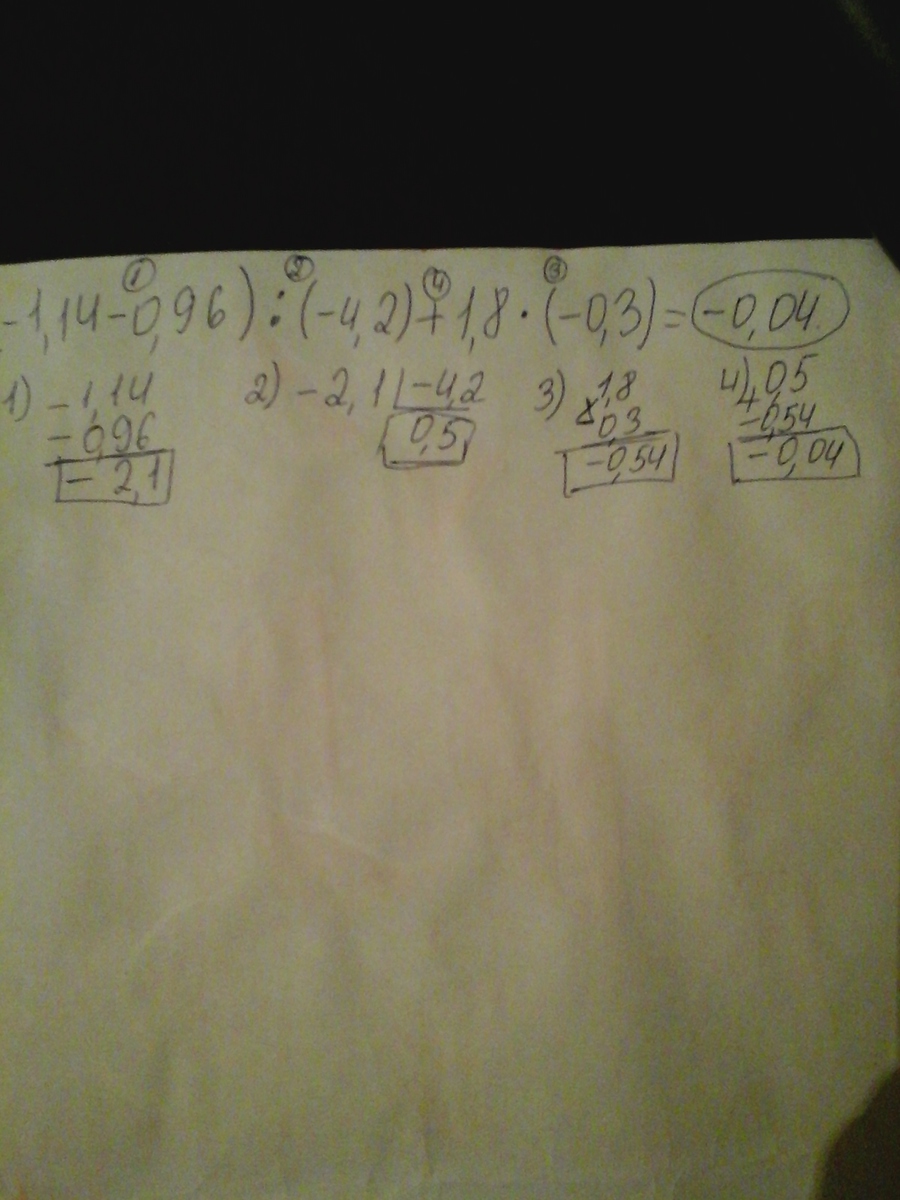 ① ② ④ ③
-1,14-0,96):(-4,2)+1,8·(-0,3)=-0,04
1) -1,14 2) -2,1 -4,2 3) 1,8 4) 0,5
-0,96 0,5 × 0,3 + -0,54
-2,1 -0,54 -0,04